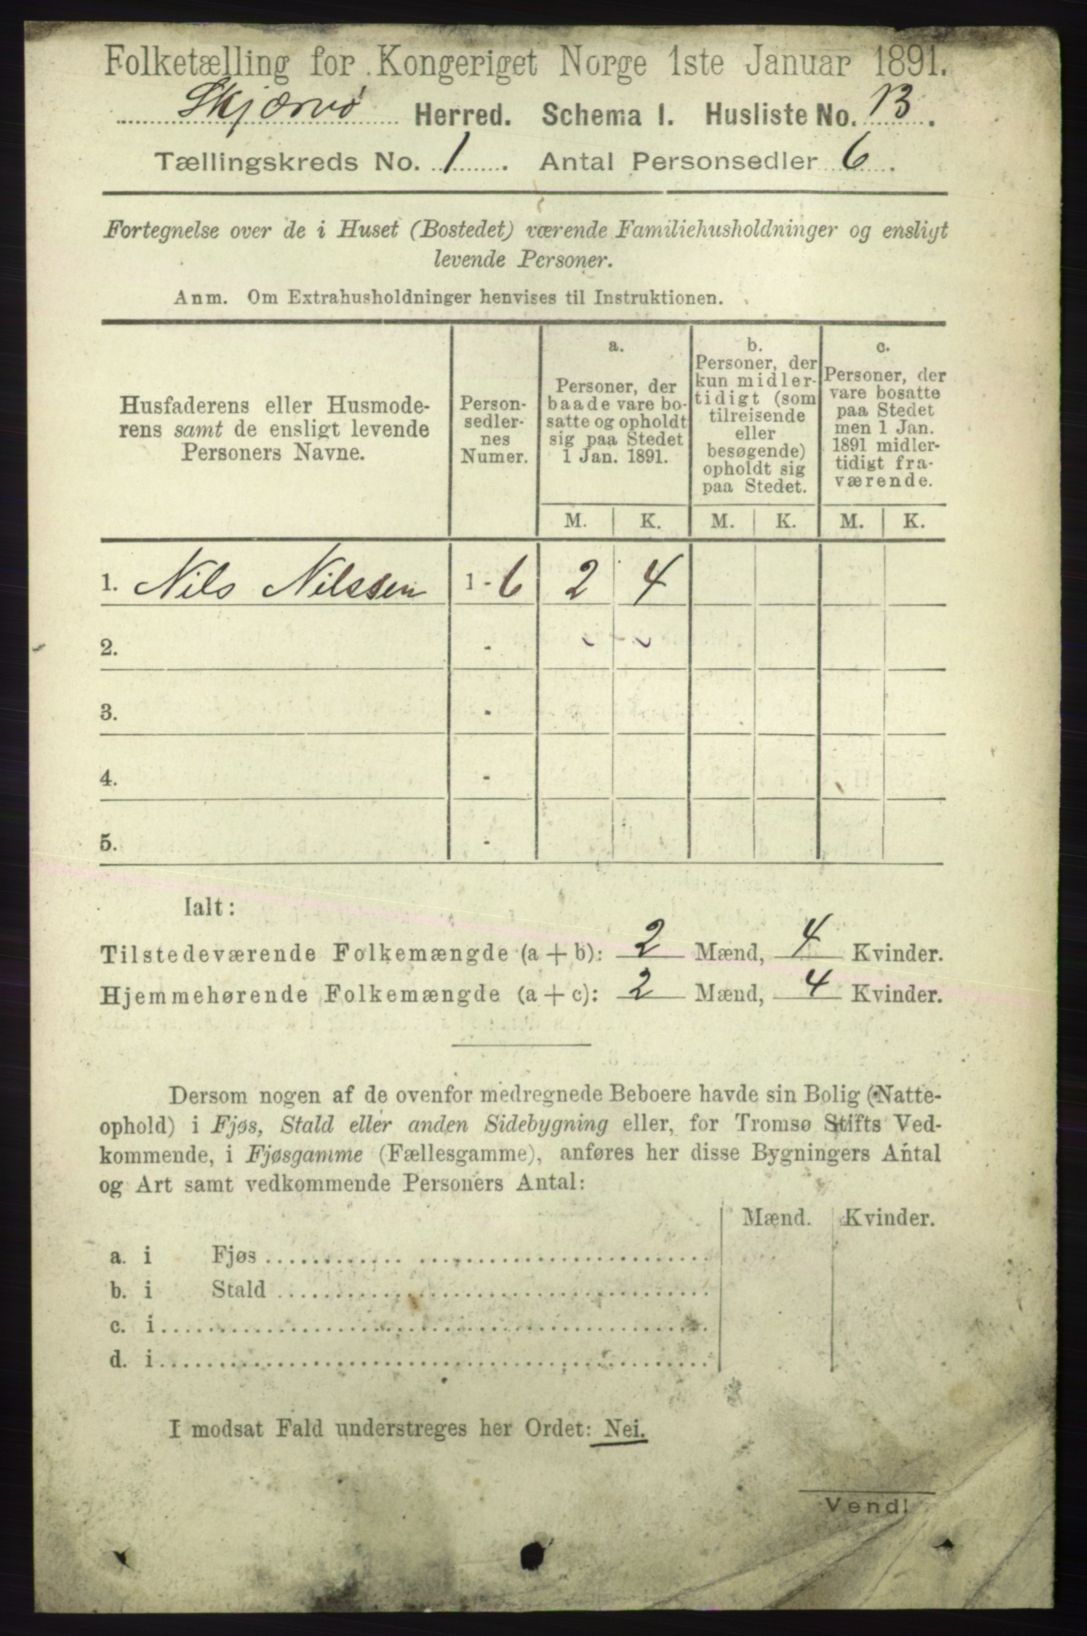 Folketælling for Kongeriget Norge 1ste Januar 1891.
Skjærvø Herred. Schema I. Husliste No. 13.
Tællingskreds No. 1. Antal Personsedler 6.
Fortegnelse over de i Huset (Bostedet) værende Familiehusholdninger og ensligt
levende Personer.
Anm. Om Extrahusholdninger henvises til Instruktionen.
Husfaderens eller Husmode-
rens samt de ensligt levende
Personers Navne.
Person-
sedler-
nes
Numer.
a.
Personer, der
baade vare bo-
satte og opholdt
sig paa Stedet
1 Jan. 1891.
b.
Personer, der
kun midler-
tidigt (som
tilreisende
eller
besøgende)
opholdt sig
paa Stedet.
c.
Personer, der
vare bosatte
paa Stedet
men 1 Jan.
1891 midler-
tidigt fra-
værende.
M. K. M. K. M. K.
1. Nils Nilssen 1 - 6 2 4
2. -
3. -
4. -
5. -
Ialt:
Tilstedeværende Folkemængde (a + b): 2 Mænd, 4 Kvinder.
Hjemmehørende Folkemængde (a + c): 2 Mænd, 4 Kvinder.
Dersom nogen af de ovenfor medregnede Beboere havde sin Bolig (Natte-
ophold) i Fjøs, Stald eller anden Sidebygning eller, for Tromsø Stifts Ved-
kommende, i Fjøsgamme (Fællesgamme), anføres her disse Bygningers Antal
og Art samt vedkommende Personers Antal:
Mænd. Kvinder.
a. i Fjøs
b. i Stald
c. i
d. i
I modsat Fald understreges her Ordet: Nei.
Vend!